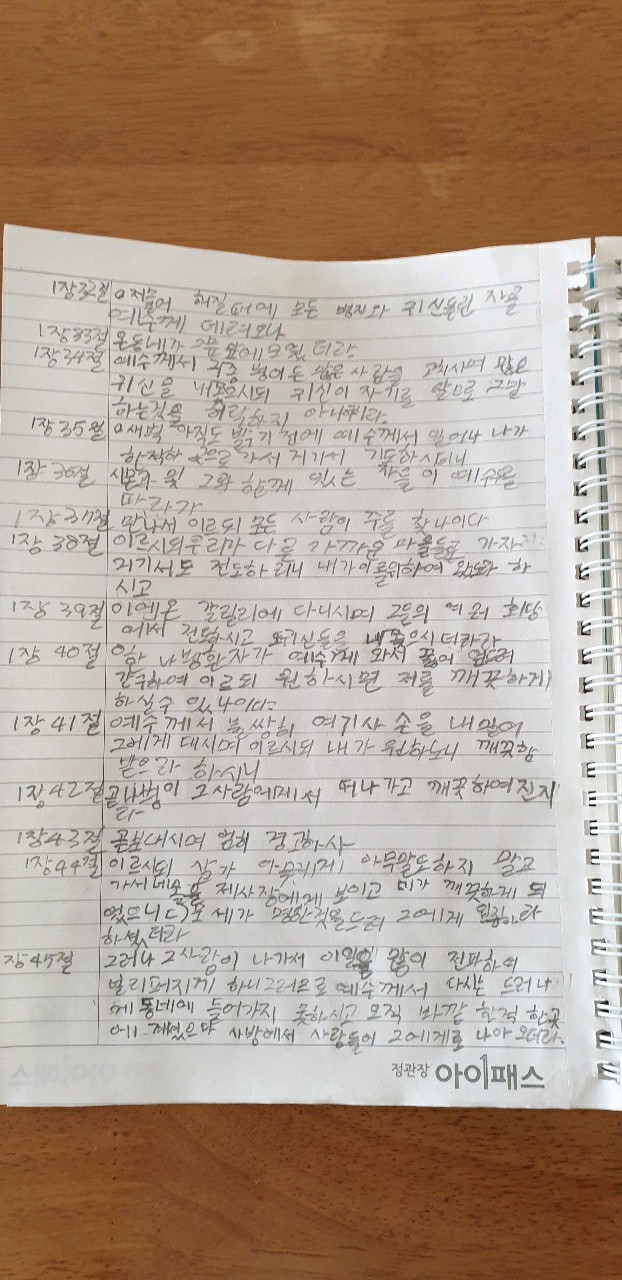 1장32절 ㅁ저물어 해질때에 모든 병자와 귀신들린 자를
예수께 데려오니
1장33절 온동네가 그문앞에 모였더라
1장34절 예수께서 각종 병이든 많은 사람을 고치시며 많은
귀신을 내쫓으시되 귀신이 자기를 알므로 그말
하는것을 허락하지 아니하니라
1장35절 ㅁ새벽 아직도 밝기 전에 예수께서 일어나 나가
한적한 곳으로 가서 거기서 기도하시더니
1장 36절 시몬과 및 그와 함께 있는 자들이 예수를
따라가
1장37절 만나서 이르되 모든 사람이 주를 찾나이다
1장 38절 이르시되우리가 다른 가까운 마을들로 가자
거기서도 전도하리니 내가이를위하여 왔노라 하
시고
1장 39절 이에온 갈릴리에 다니시며 그들의 여러 회당
에서 전도하시고 또귀신들을 내쫓으시더라
1장 40절 한 나병환자가 예수께 와서 꿇어 엎드려
간구하여 이르되 원하시면 저를 깨끗하게
하실수 있나이다
1장 41절 예수께서 불쌍히 여기사 손을 내밀어
그에게 대시며 이르시되 내가 원하노니 깨끗함
받으라 하시니
1장42절 곧나병이 그사람에게서 떠나가고 깨끗하여진지
라
1장43절 곧보내시며 엄히 경고하사
1장44절 이르시되 삼가 아무에게 아무말도하지 말고
가서네몸을 제사장에게 보이고 네가 깨끗하게 되
었으니 모세가 명한것을드려 그에게 입증하라
하셨더라
장45절 그러나 그사람이 나가서 이일을 많이 전파하여
널리퍼지게 하니그러므로 예수께서 다시는 드러나
게 동네에 들어가지 못하시고 오직 바깥 한적 한곳
에 계셨으나 사방에서 사람들이 그에게로 나아 오더라
정관장 아이패스